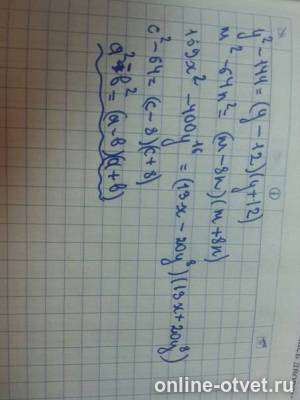 ①
y² - 144 = (y - 12)(y + 12)
m² - 64n² = (m - 8n)(m + 8n)
169x² - 400y¹⁶ = (13x - 20y⁸)(13x + 20y⁸)
c² - 64 = (c - 8)(c + 8)
a² - b² = (a - b)(a + b)
online-otvet.ru